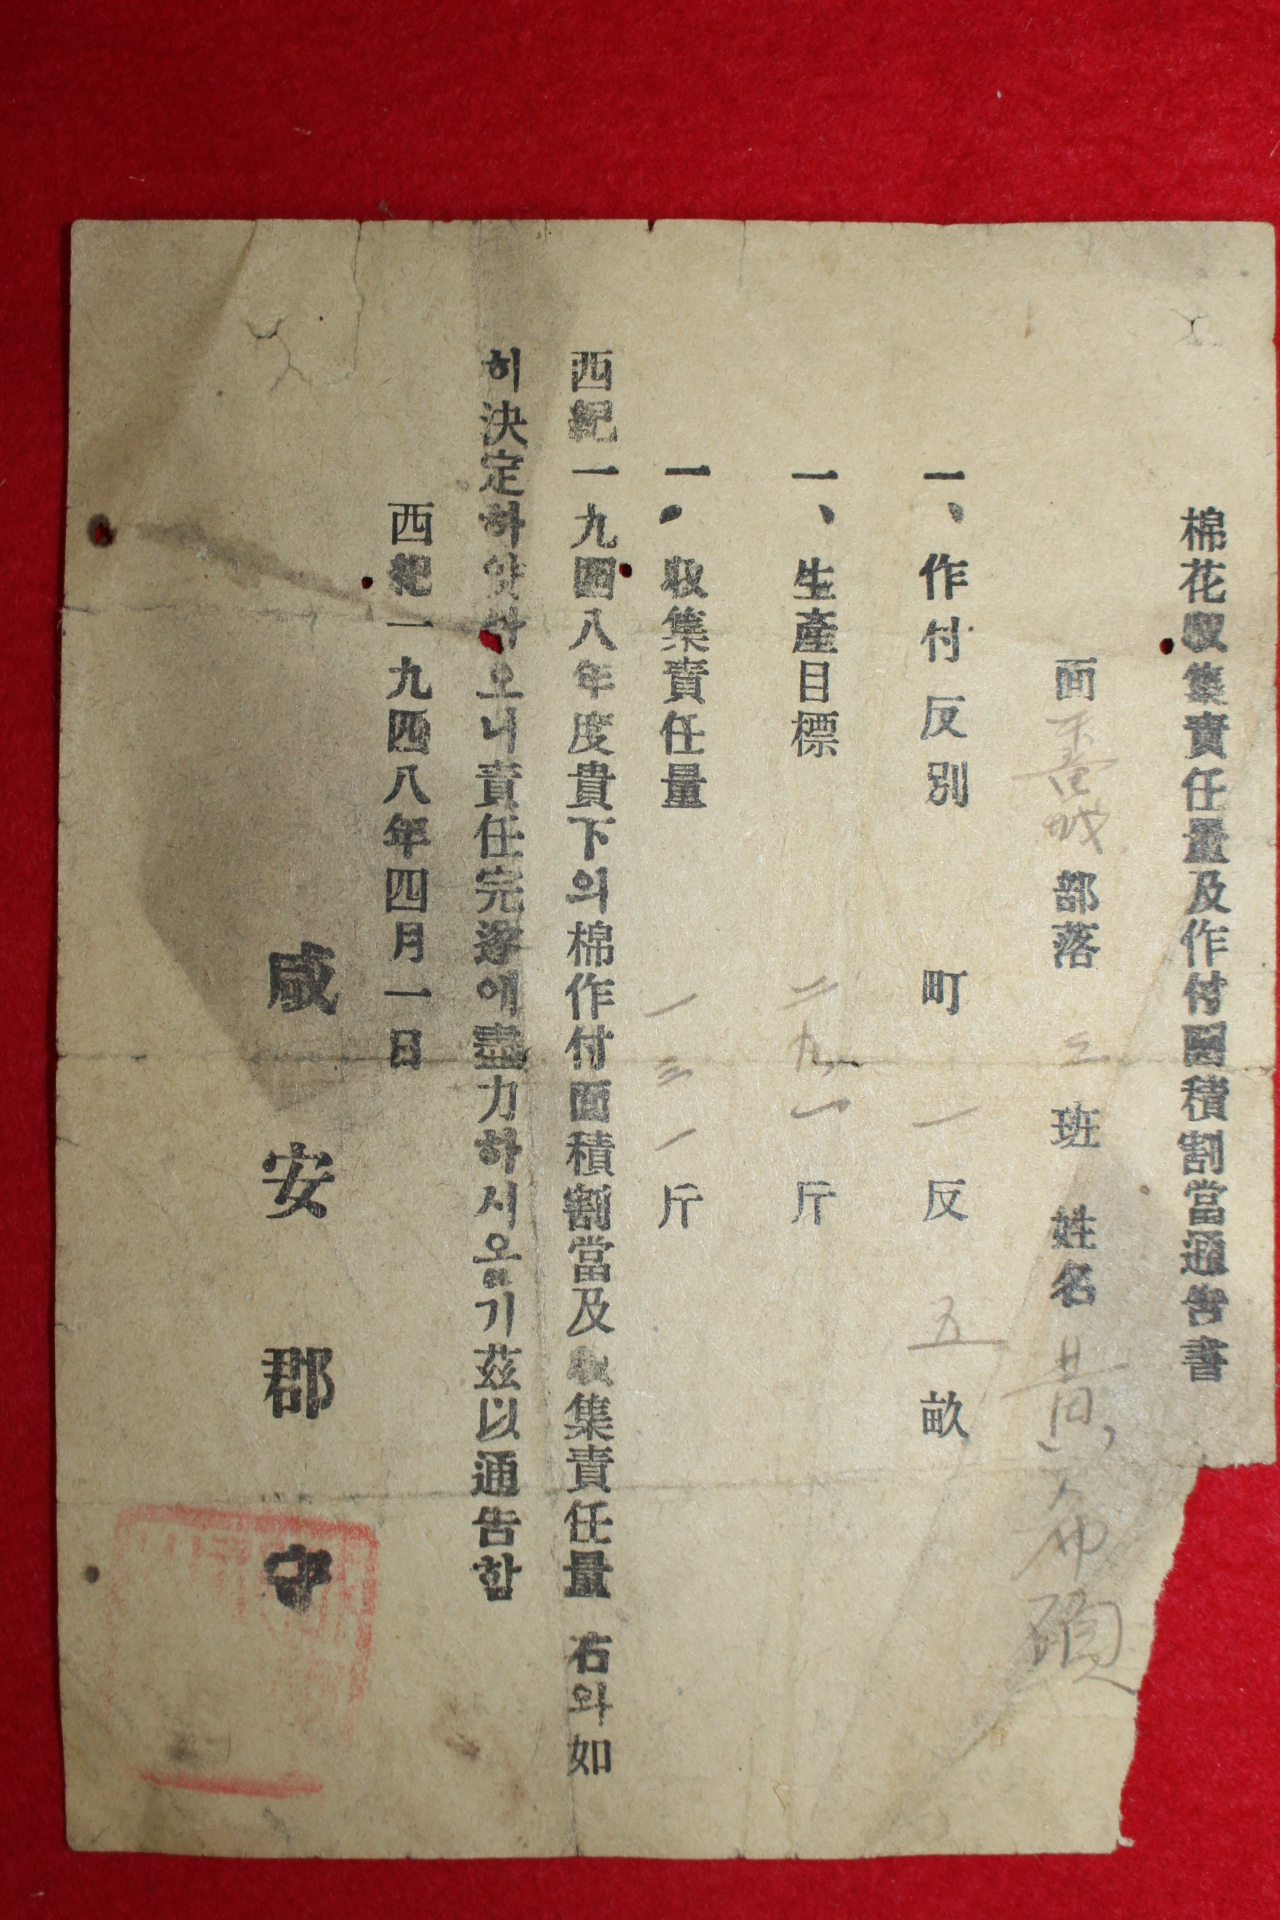 棉花収集責任量及作付面積割當通告書
面 城部落 三班 姓名 黃
一、作付反別 町 一反 五畝
一、生產目標 二九一斤
一、収集責任量 一三一斤
西紀一九四八年度貴下의棉作付面積割當及収集責任量 右와如
히決定하얏사오니責任完遂에盡力하시옵기茲以通告함
西紀一九四八年四月一日
咸安郡守